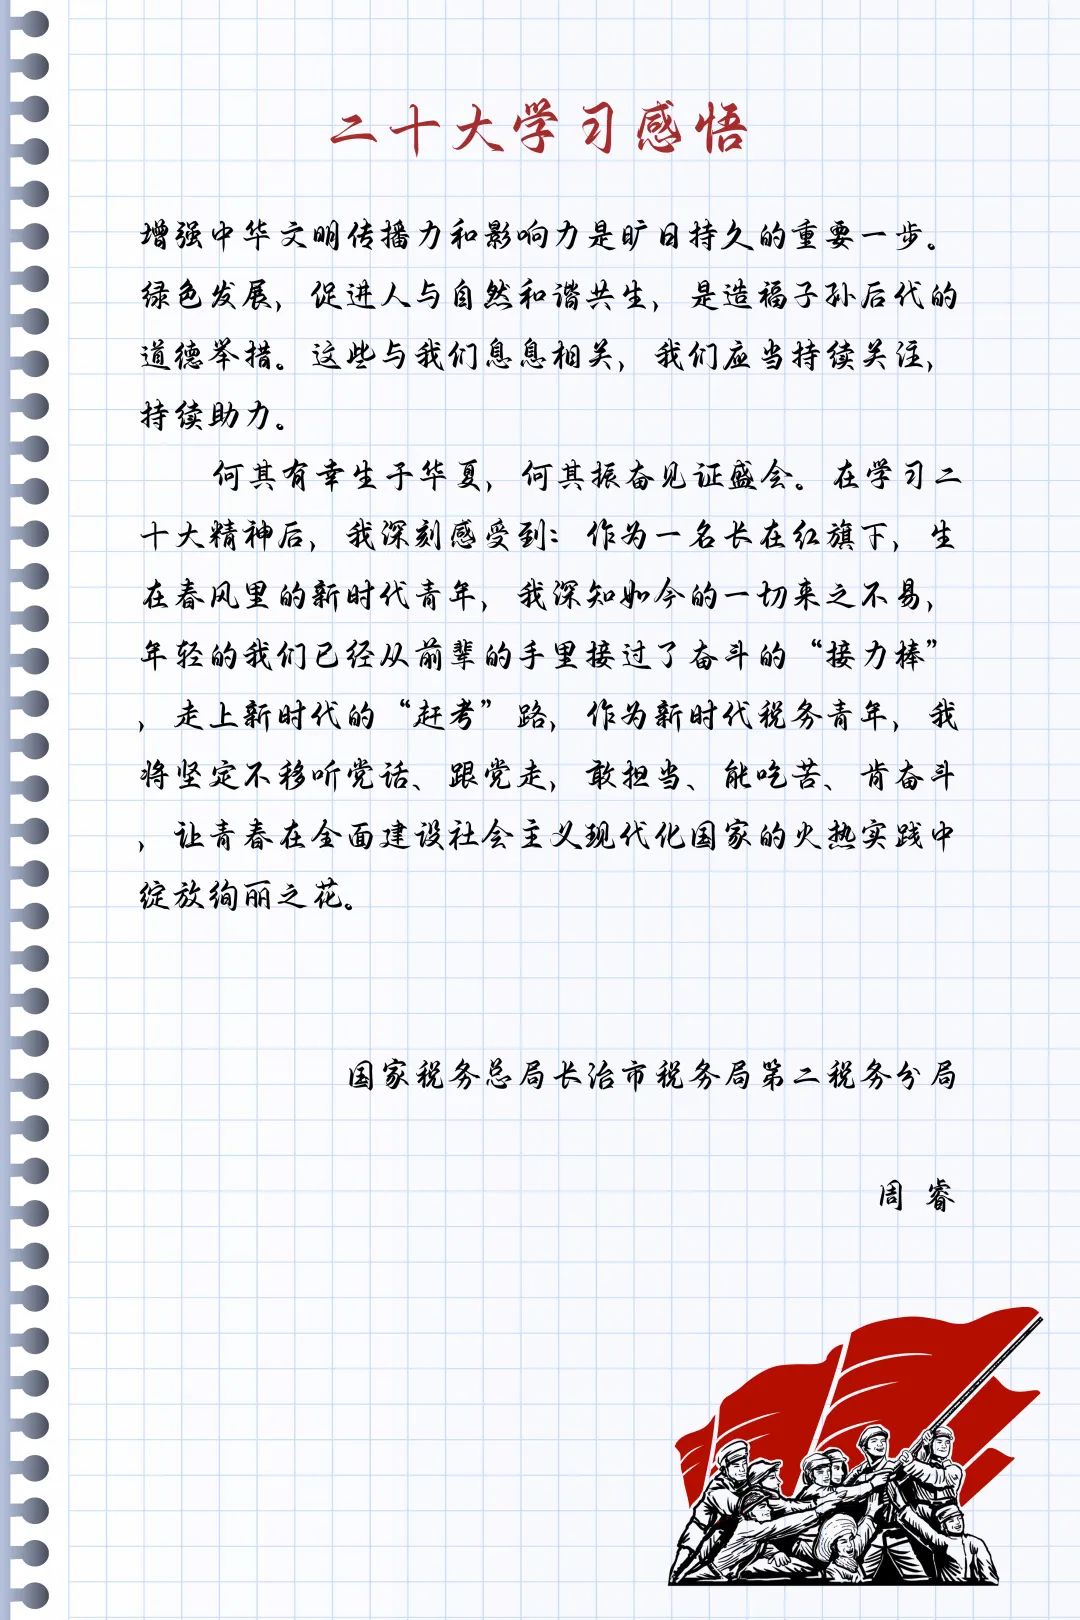 二十大学习感悟
增强中华文明传播力和影响力是旷日持久的重要一步。
绿色发展，促进人与自然和谐共生，是造福子孙后代的
道德举措。这些与我们息息相关，我们应当持续关注，
持续助力。
何其有幸生于华夏，何其振奋见证盛会。在学习二
十大精神后，我深刻感受到：作为一名长在红旗下，生
在春风里的新时代青年，我深知如今的一切来之不易，
年轻的我们已经从前辈的手里接过了奋斗的“接力棒”
，走上新时代的“赶考”路，作为新时代税务青年，我
将坚定不移听党话、跟党走，敢担当、能吃苦、肯奋斗
，让青春在全面建设社会主义现代化国家的火热实践中
绽放绚丽之花。
国家税务总局长治市税务局第二税务分局
周 睿